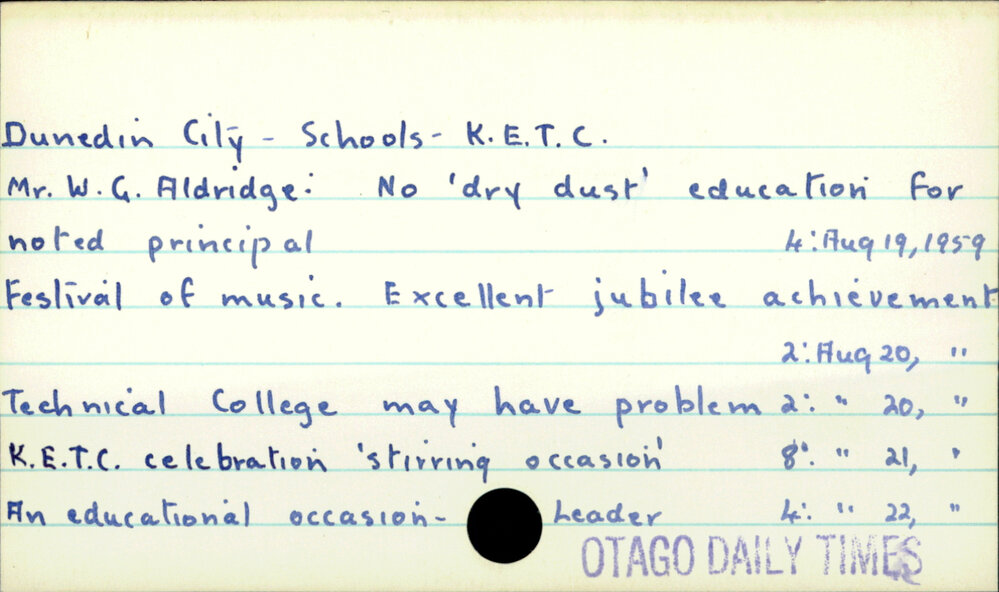 Dunedin City - Schools - K.E.T.C.
Mr. W. G. Aldridge: No 'dry dust' education for
noted principal 4: Aug 19, 1959
Festival of music. Excellent jubilee achievement
2: Aug 20, "
Technical College may have problem 2: " 20, "
K.E.T.C. celebration 'stirring occasion' 8: " 21, "
An educational occasion - Leader 4: " 22, "
OTAGO DAILY TIMES